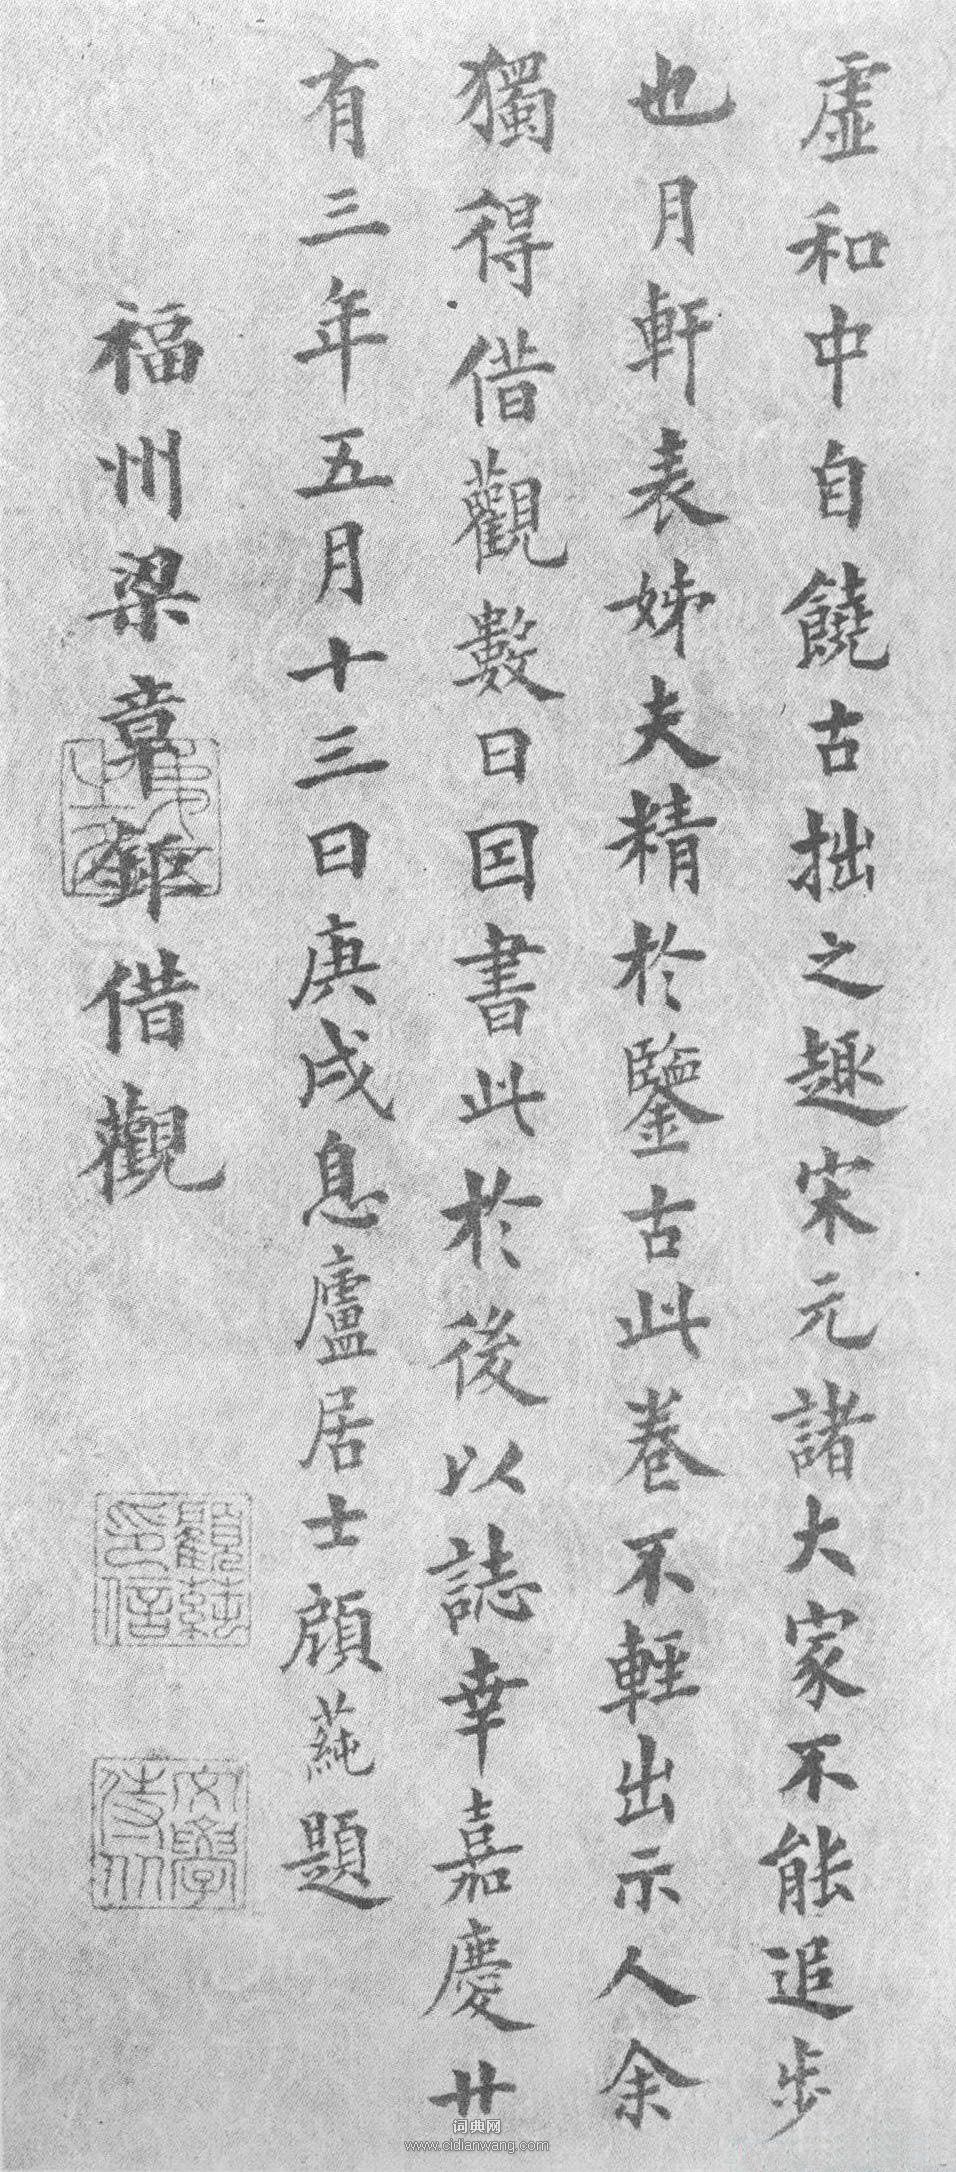 虛和中自饒古拙之趣宋元諸大家不能追步
也月軒表姊夫精於鑒古此卷不輕出示人余
獨得借觀數日因書此於後以誌幸嘉慶廿
有三年五月十三日庚戌息廬居士顧蒓題
福州梁章鉅借觀
顧蒓印信
文學侍從
词典网
www.cidianwang.com